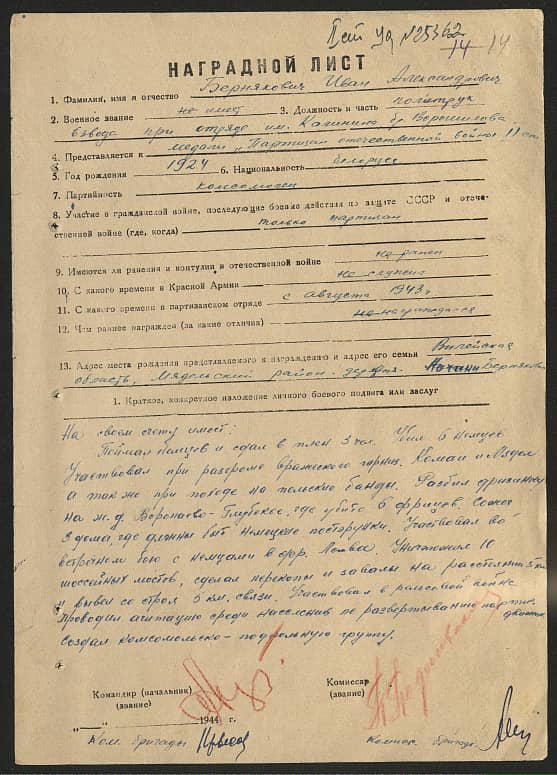 №25362
14 14
НАГРАДНОЙ ЛИСТ
1. Фамилия, имя и отчество Бернякович Иван Александрович
2. Военное звание не имеет 3. Должность и часть политрук
взвода при отряде им. Калинина бр. Ворошилова
4. Представляется к медали „Партизан отечественной войны" II ст
5. Год рождения 1924 6. Национальность белорус
7. Партийность комсомолец
8. Участие в гражданской войне, последующие боевые действия по защите СССР и отече-
ственной войне (где, когда) только партизан
9. Имеются ли ранения и контузии в отечественной войне не ранен
10. С какого времени в Красной Армии не служил
11. С какого времени в партизанском отряде с августа 1943 г
12. Чем раннее награжден (за какие отличия) не награждался
13. Адрес места рождения представляемого к награждению и адрес его семьи Вилейская
область, Мядельский район деревня
1. Краткое, конкретное изложение личного боевого подвига или заслуг
На своем счету имеет:
Поймал немцев и сдал в плен 3 чел. Убил 6 немцев
Участвовал при разгроме вражеского гарниз. и Мядел
а также при походе на польские банды. Разбил
на ж.д. Воропаево-Глубокое, где убито 6 фрицев. Сжег
3 дома где должны быть немецкие постерунки. Участвовал во
встречном бою с немцами в дер. Уничтожил 10
шоссейных мостов, сделал перекопы и завалы на расстоянии 5 км
и вывел со строя 5 км. связи. Участвовал в рельсовой войне
проводил агитацию среди населения по развертыванию партиз.
движения
создал комсомольско-подпольную группу.
Командир (начальник) Комиссар
(звание) (звание)
„___"________1944 г.
Ком. бригады Комиссар бригады